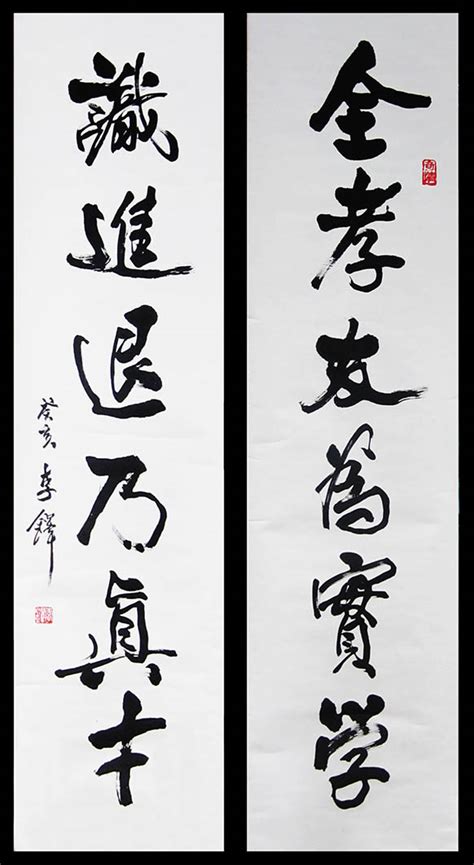 全孝友为實学
識進退乃真才
癸亥 李鐸